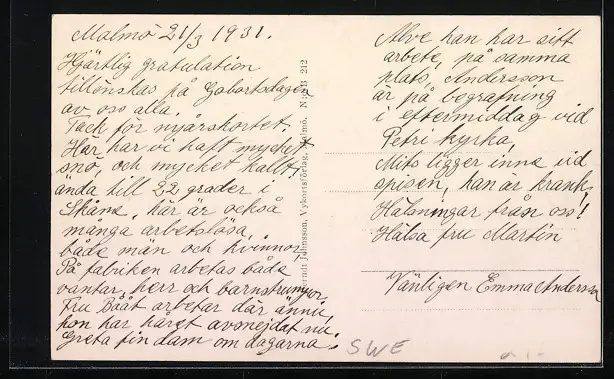 Malmö 21/3 1931.
Hjärtlig gratulation
tillönskas på Gebortsdagen
av oss alla.
Tack för nyårskortet.
Här har vi haft mycket
snö, och mycket kallt,
ända till 22 grader i
Skåne, här är också
många arbetslösa,
både män och kvinnor,
På fabriken arbetas både
vantar, herr och barnstrumpor.
Fru Bååt arbetar där ännu,
hon har håret avsnejdat nu
Greta fin dam om dagarna.
Alve han har sitt
arbete, på samma
plats, Andersson
är på begrafning
i eftermiddag vid
Petri kyrka,
Mits ligger inne vid
spisen, han är krank,
Hälsningar från oss!
Hälsa fru Martin
Vänligen Emma Andersson
Johnsson, Vykortsförlag, Malmö. N:o 212
SWE